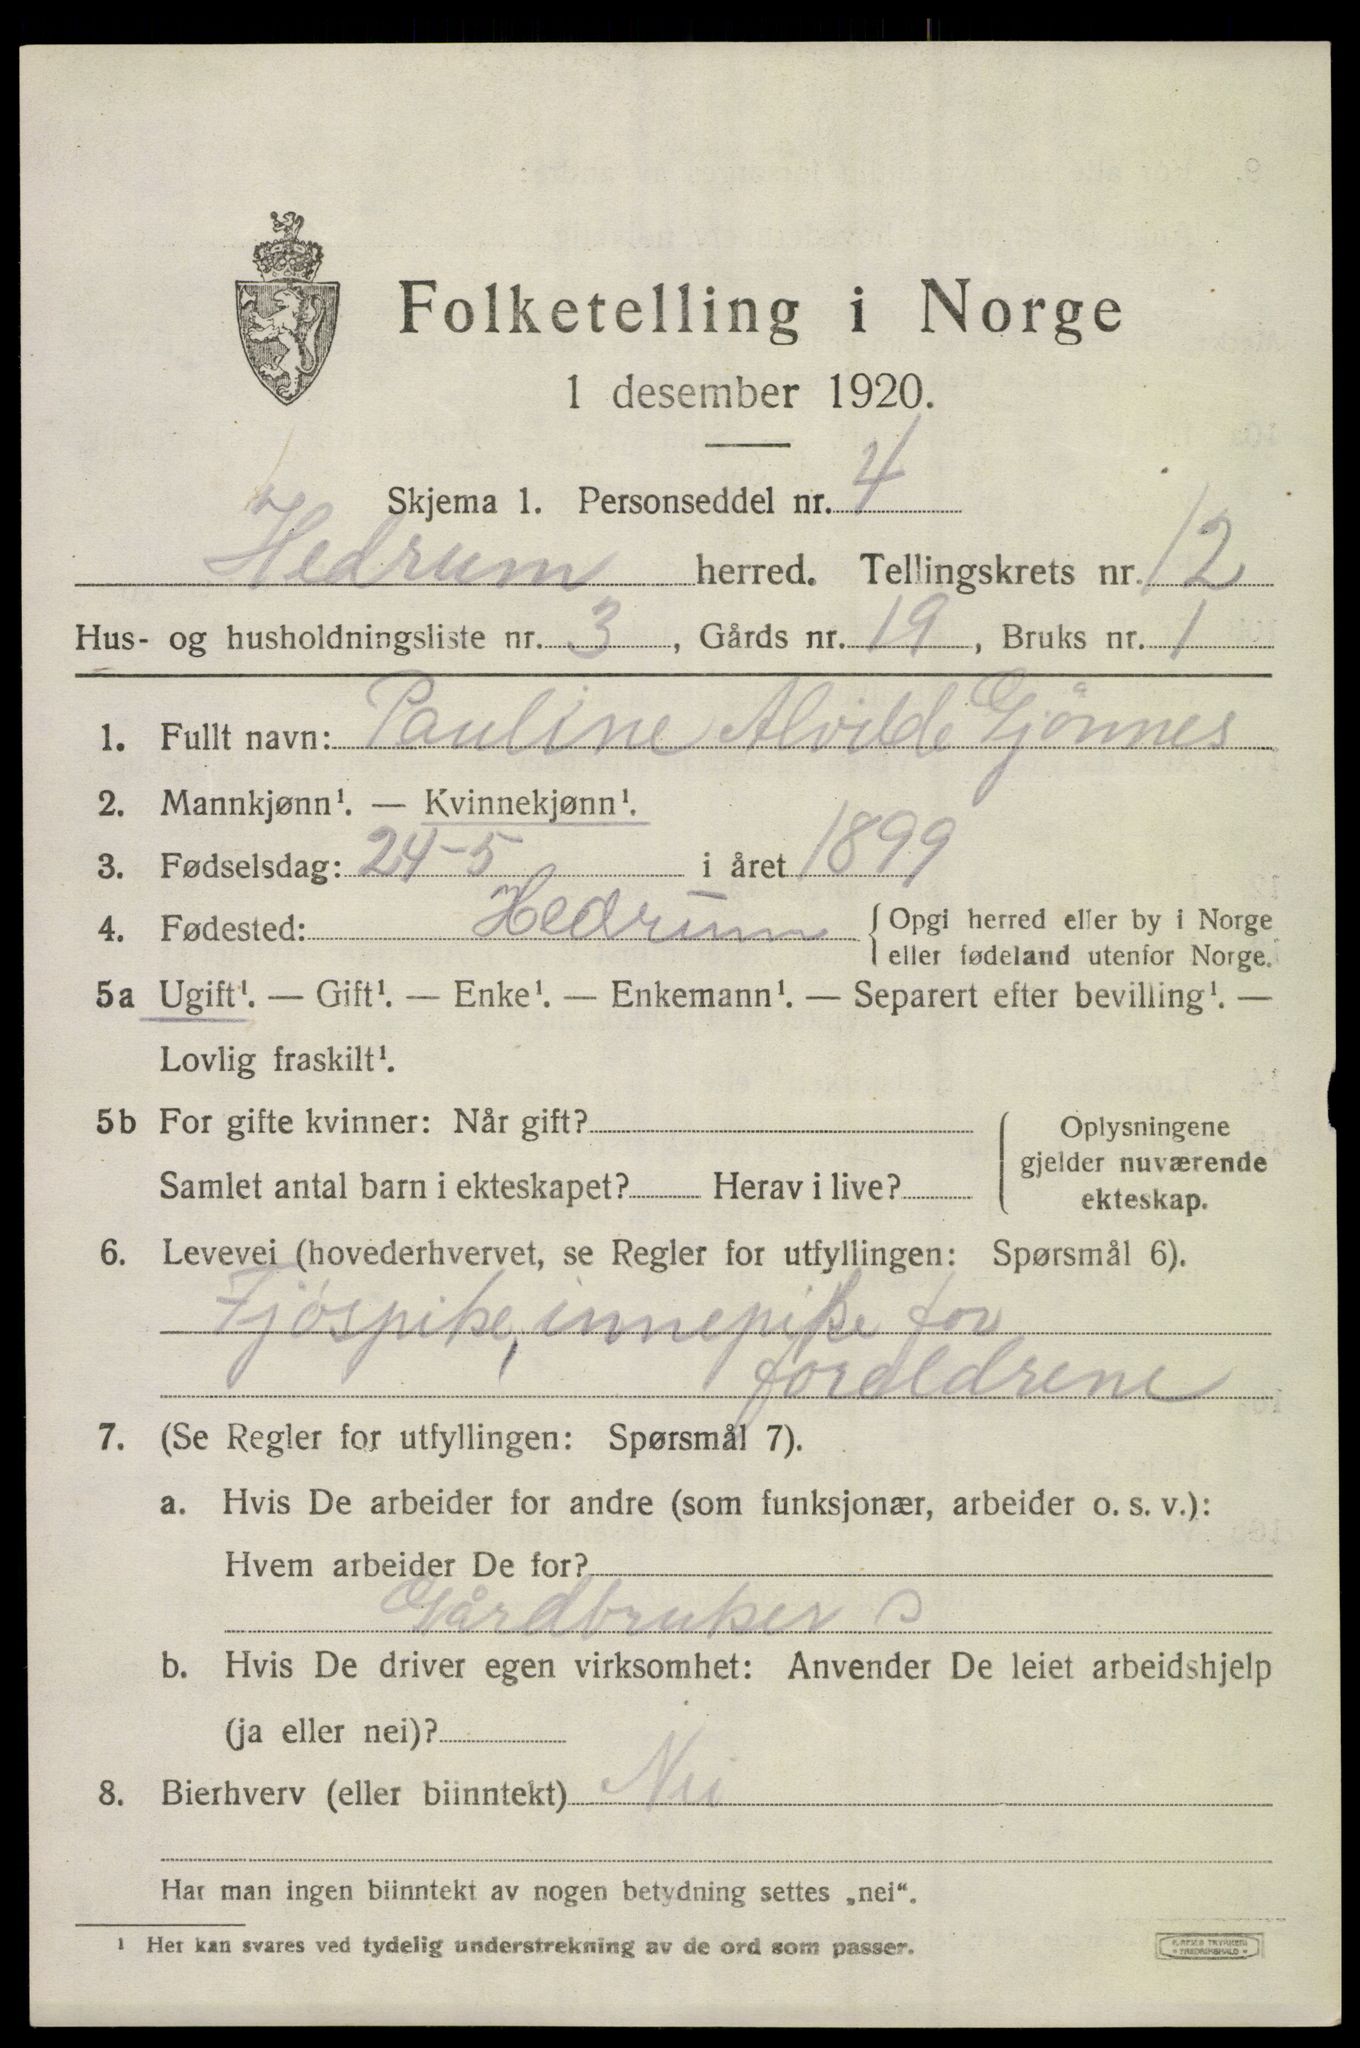 Folketelling i Norge
1 desember 1920.
Skjema 1. Personseddel nr. 4
Hedrum herred. Tellingskrets nr. 12
Hus- og husholdningsliste nr. 3, Gårds nr. 19, Bruks nr. 1
1. Fullt navn: Pauline Alvilde Gjönnes
2. Mannkjønn¹. — Kvinnekjønn¹.
3. Fødselsdag: 24-5 i året 1899
4. Fødested: Hedrum { Opgi herred eller by i Norge
eller fødeland utenfor Norge.
5a Ugift¹. — Gift¹. — Enke¹. — Enkemann¹. — Separert efter bevilling¹. —
Lovlig fraskilt¹.
5b For gifte kvinner: Når gift?
Samlet antal barn i ekteskapet? Herav i live?
Oplysningene
gjelder nuværende
ekteskap.
6. Levevei (hovederhvervet, se Regler for utfyllingen: Spørsmål 6).
Fjøspike, innepike for
foreldrene
7. (Se Regler for utfyllingen: Spørsmål 7).
a. Hvis De arbeider for andre (som funksjonær, arbeider o. s. v.):
Hvem arbeider De for?
Gårdbruker
b. Hvis De driver egen virksomhet: Anvender De leiet arbeidshjelp
(ja eller nei)?
8. Bierhverv (eller biinntekt) Nei
Har man ingen biinntekt av nogen betydning settes „nei“.
¹ Her kan svares ved tydelig understrekning av de ord som passer.